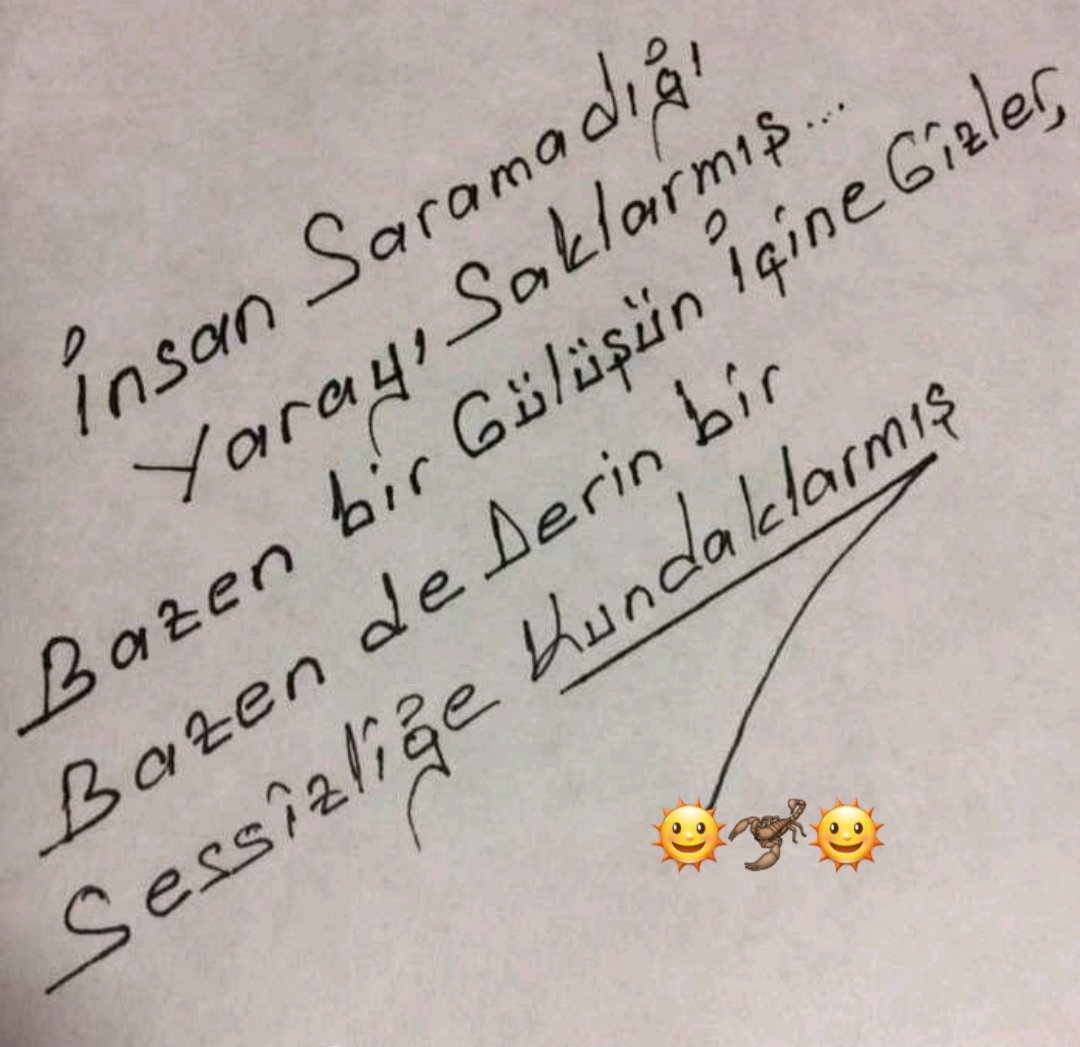 İnsan Saramadığı
Yarayı Saklarmış...
Bazen bir Gülüşün İçine Gizler,
Bazen de Derin bir
Sessizliğe Kundaklarmış